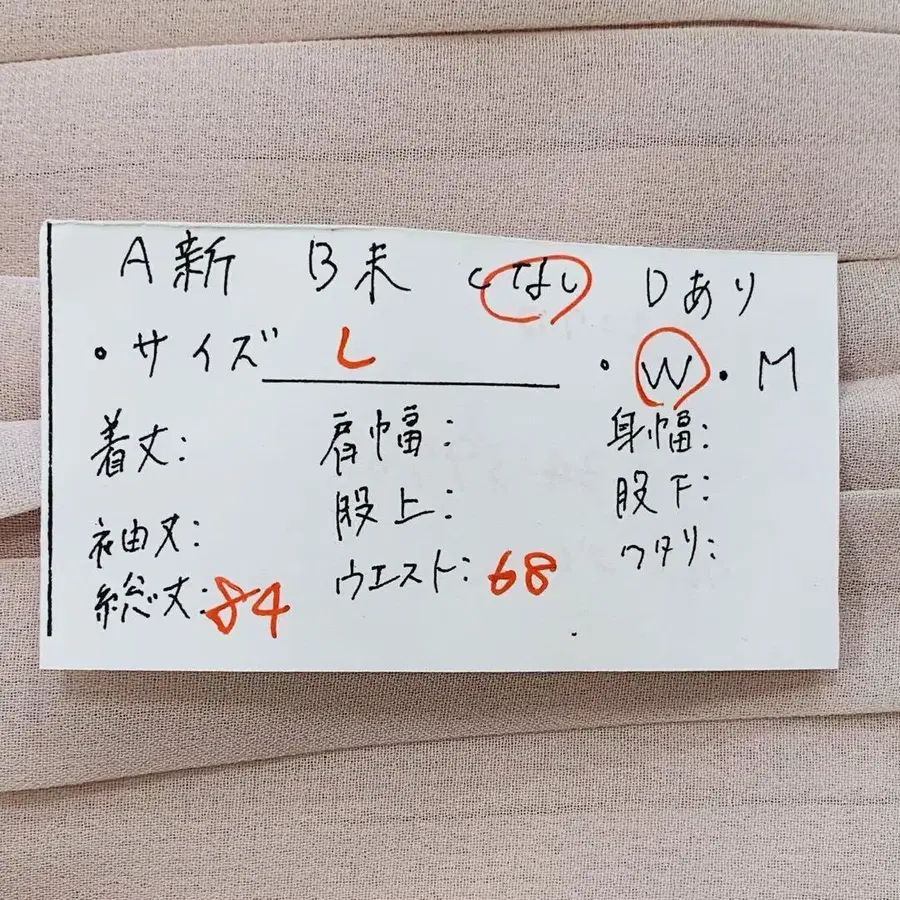 A新 B未 Cなし Dあり
・サイズ L ・W・M
着丈: 肩幅: 身幅:
股上: 股下:
袖丈: ウエスト: 68 ワタリ:
総丈: 84